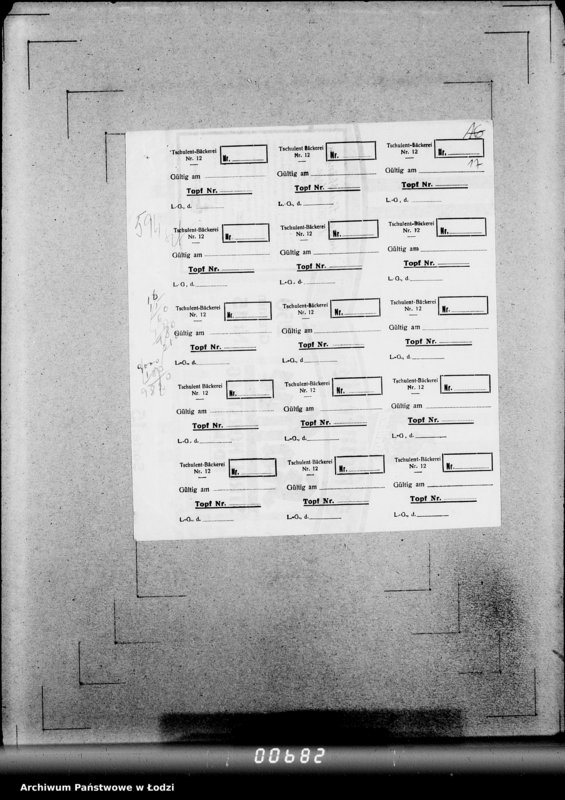 16
17
Tschulent-Bäckerei Nr. 12 Nr.
Gültig am
Topf Nr.
L.-G., d.
Tschulent Bäckerei Nr. 12 Nr.
Gültig am
Topf Nr.
L.-G., d.
Tschulent-Bäckerei Nr. 12 Nr.
Gültig am
Topf Nr.
L.-G., d.
594
Tschulent-Bäckerei Nr. 12 Nr.
Gültig am
Topf Nr.
L.-G., d.
Tschulent-Bäckerei Nr. 12 Nr.
Gültig am
Topf Nr.
L.-G., d.
Tschulent-Bäckerei Nr. 12 Nr.
Gültig am
Topf Nr.
L.-G., d.
16
Tschulent-Bäckerei Nr. 12 Nr.
Gültig am
Topf Nr.
L.-G., d.
Tschulent-Bäckerei Nr. 12 Nr.
Gültig am
Topf Nr.
L.-G., d.
Tschulent-Bäckerei Nr. 12 Nr.
Gültig am
Topf Nr.
L.-G., d.
Tschulent Bäckerei Nr. 12 Nr.
Gültig am
Topf Nr.
L.-G., d.
Tschulent-Bäckerei Nr. 12 Nr.
Gültig am
Topf Nr.
L.-G., d.
Tschulent-Bäckerei Nr. 12 Nr.
Gültig am
Topf Nr.
L.-G., d.
Tschulent-Bäckerei Nr. 12 Nr.
Gültig am
Topf Nr.
L.-G., d.
Tschulent-Bäckerei Nr. 12 Nr.
Gültig am
Topf Nr.
L.-G., d.
Tschulent-Bäckerei Nr. 12 Nr.
Gültig am
Topf Nr.
L.-G., d.
00682
Archiwum Państwowe w Łodzi